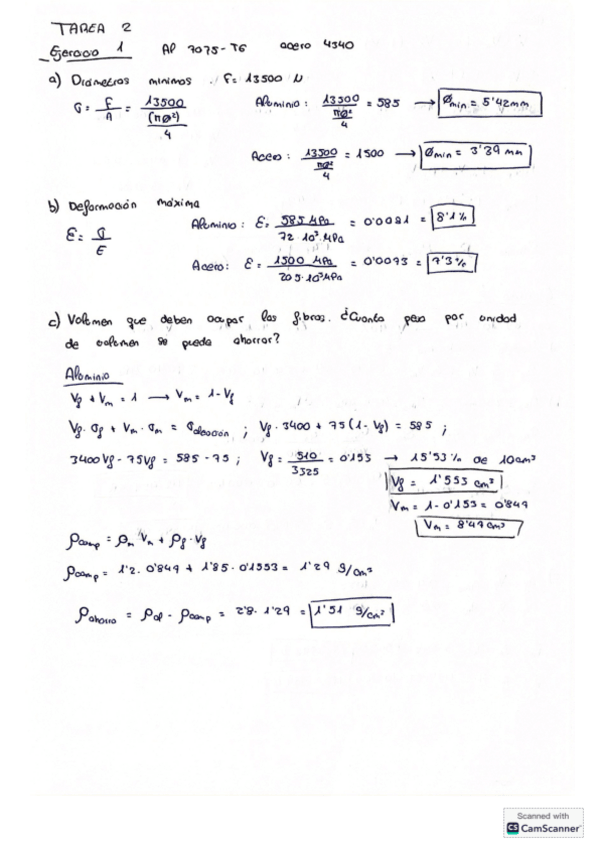 TAREA 2
Ejercicio 1 Al 7075-T6 acero 4340
a) Diámetros mínimos. F = 13500 N
G = F/A = 13500/((πØ²)/4) Aluminio: 13500/(πØ²/4) = 585 → Ømin = 5'42mm
Acero: 13500/(πØ²/4) = 1500 → Ømin = 3'39 mm
b) Deformación máxima
ε = σ/E Aluminio: ε = 585 MPa/72·10³·MPa = 0'0081 = 8'1%
Acero: ε = 1500 MPa/205·10³MPa = 0'0073 = 7'3%
c) Volumen que deben ocupar las fibras. ¿Cuanto peso por unidad
de volumen se puede ahorrar?
Aluminio
Vf + Vm = 1 → Vm = 1 - Vf
Vf · σf + Vm · σm = σaleación ; Vf · 3400 + 75(1 - Vf) = 585 ;
3400Vf - 75Vf = 585 - 75 ; Vf = 510/3325 = 0'153 → 15'53% de 10cm³
Vf = 1'553 cm³
Vm = 1 - 0'153 = 0'849
Vm = 8'49cm³
ρcomp = ρm Vm + ρf · Vf
ρcomp = 1'2 · 0'849 + 1'85 · 0'1553 = 1'29 g/cm³
ρahorro = ρal - ρcomp = 2'8 - 1'29 = 1'51 g/cm³
Scanned with
CS CamScanner